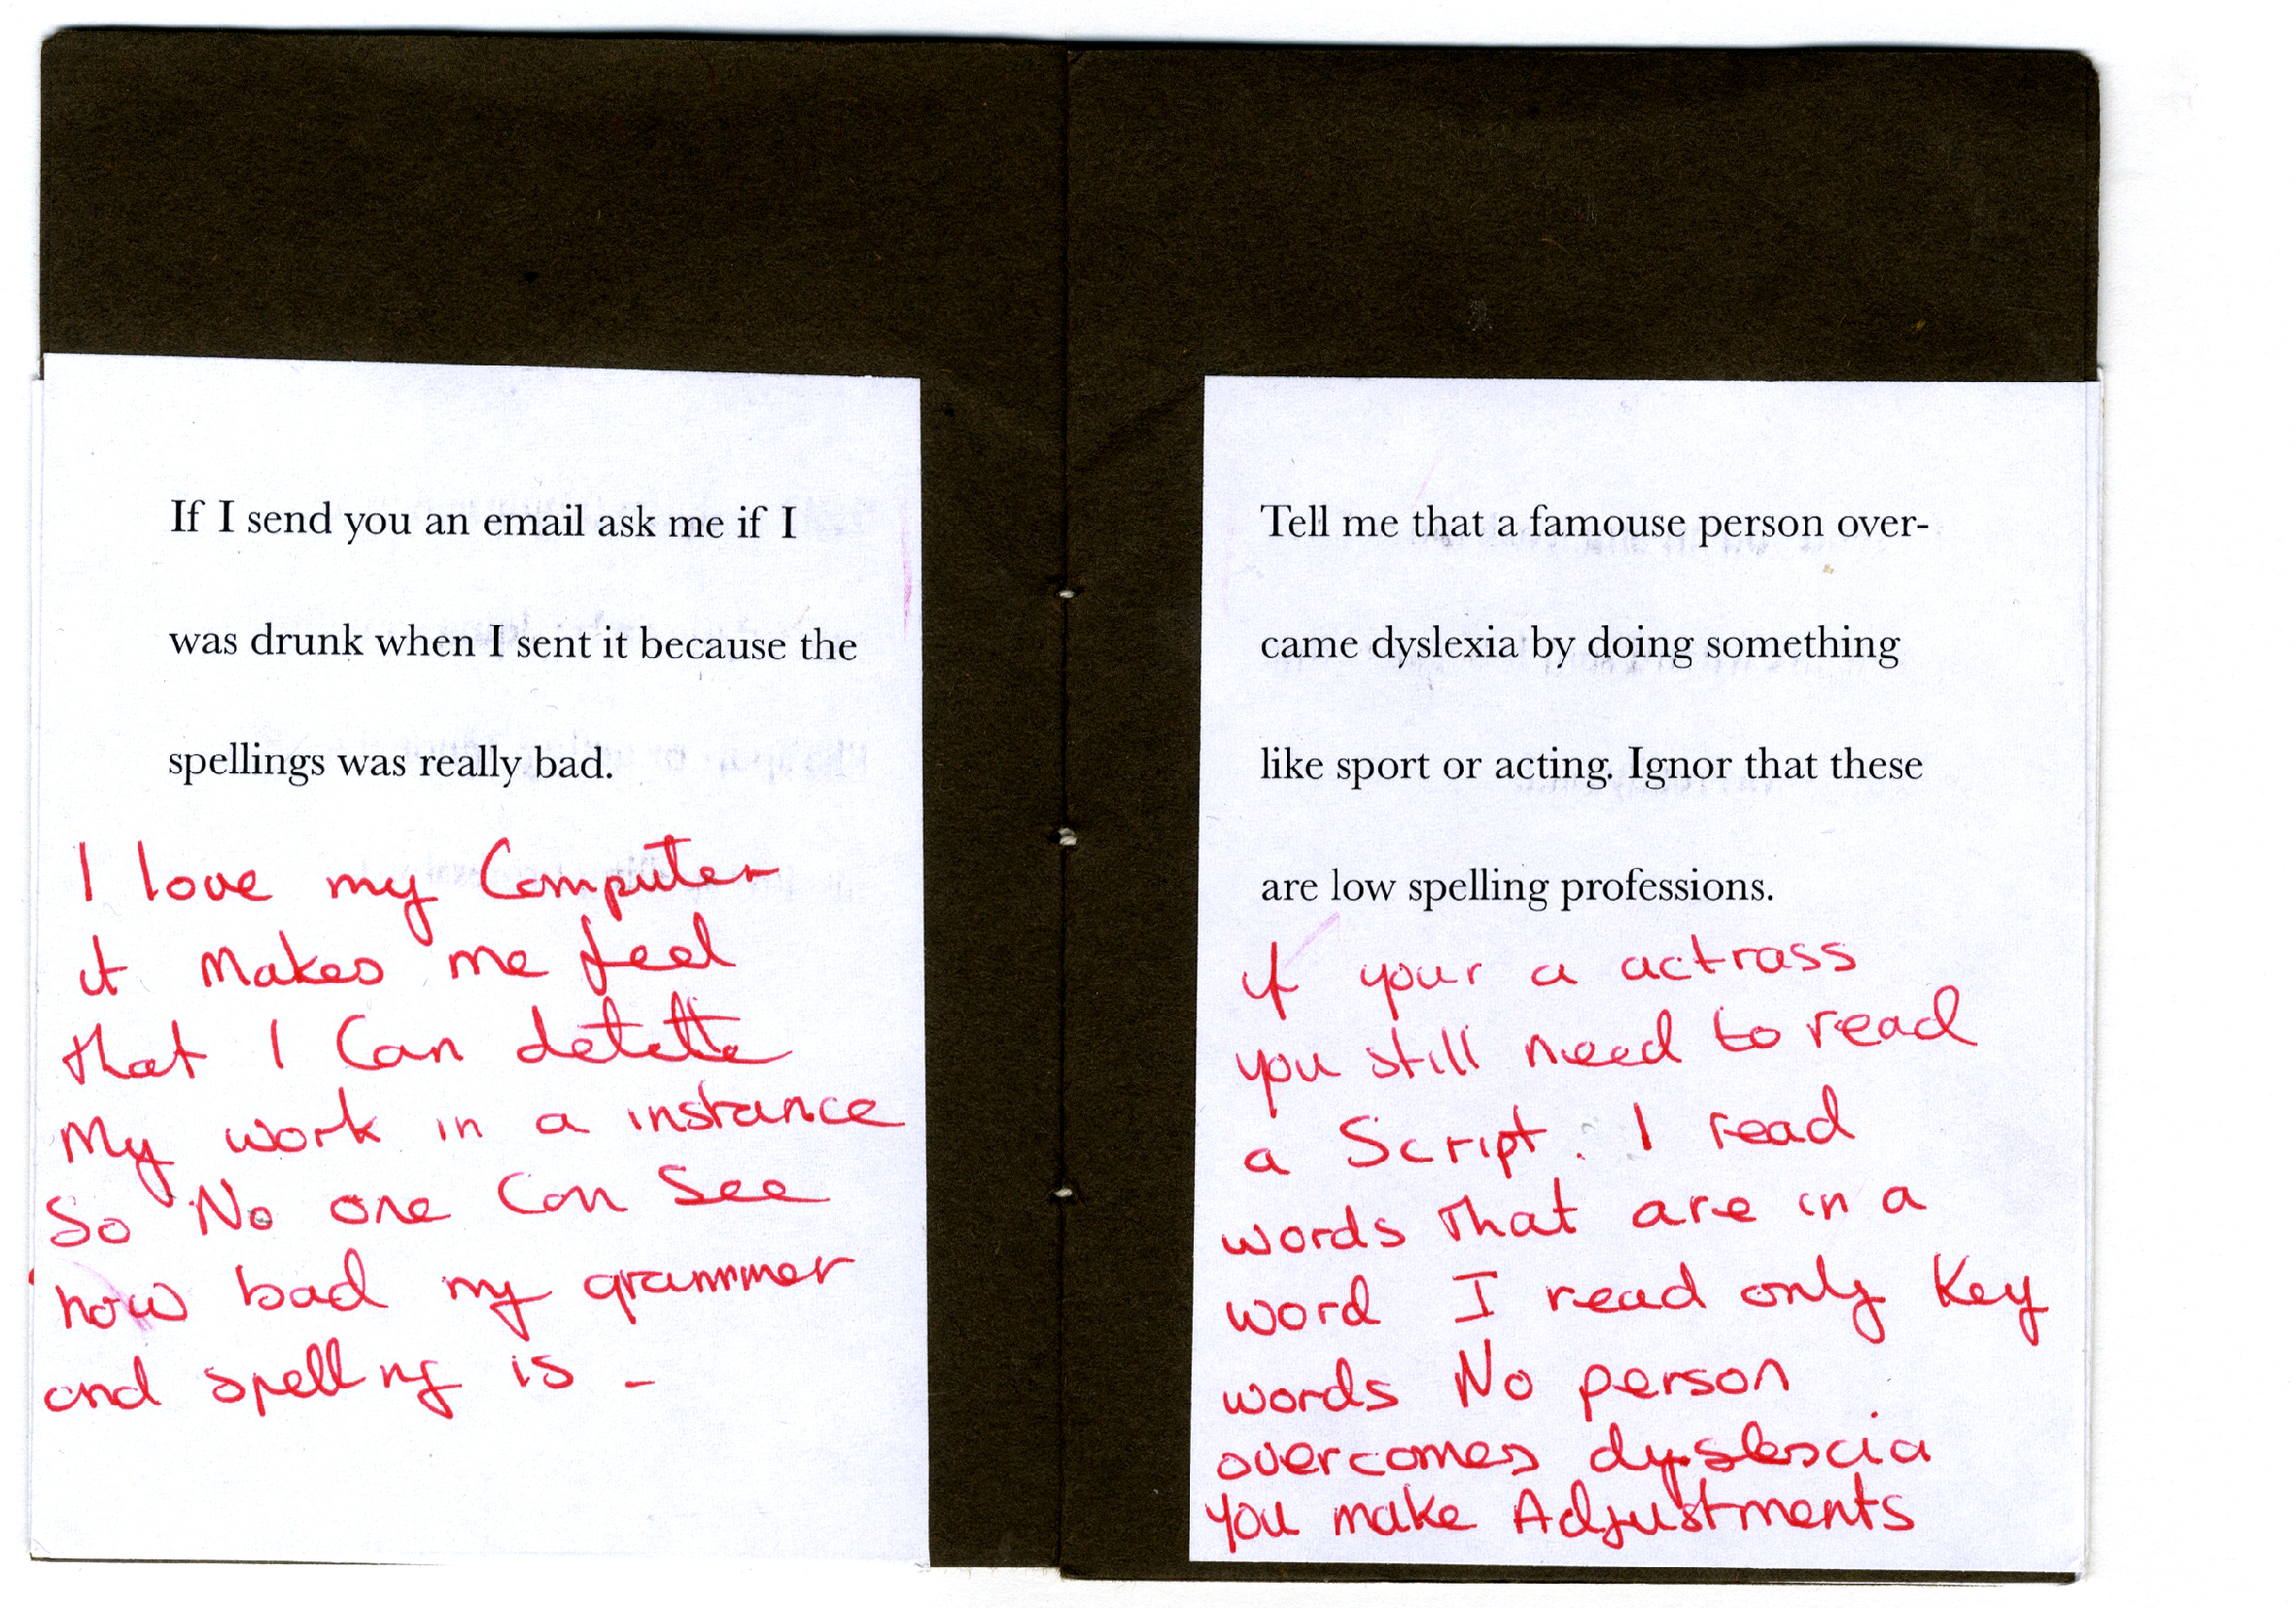 If I send you an email ask me if I
was drunk when I sent it because the
spellings was really bad.
I love my Computer
it makes me feel
that I Can detette
My work in a instance
So No one Can See
how bad my grammer
and spelling is -
Tell me that a famouse person over-
came dyslexia by doing something
like sport or acting. Ignor that these
are low spelling professions.
if your a actrass
you still need to read
a Script. I read
words that are in a
word I read only Key
words No person
overcomes dyslescia
you make Adjustments